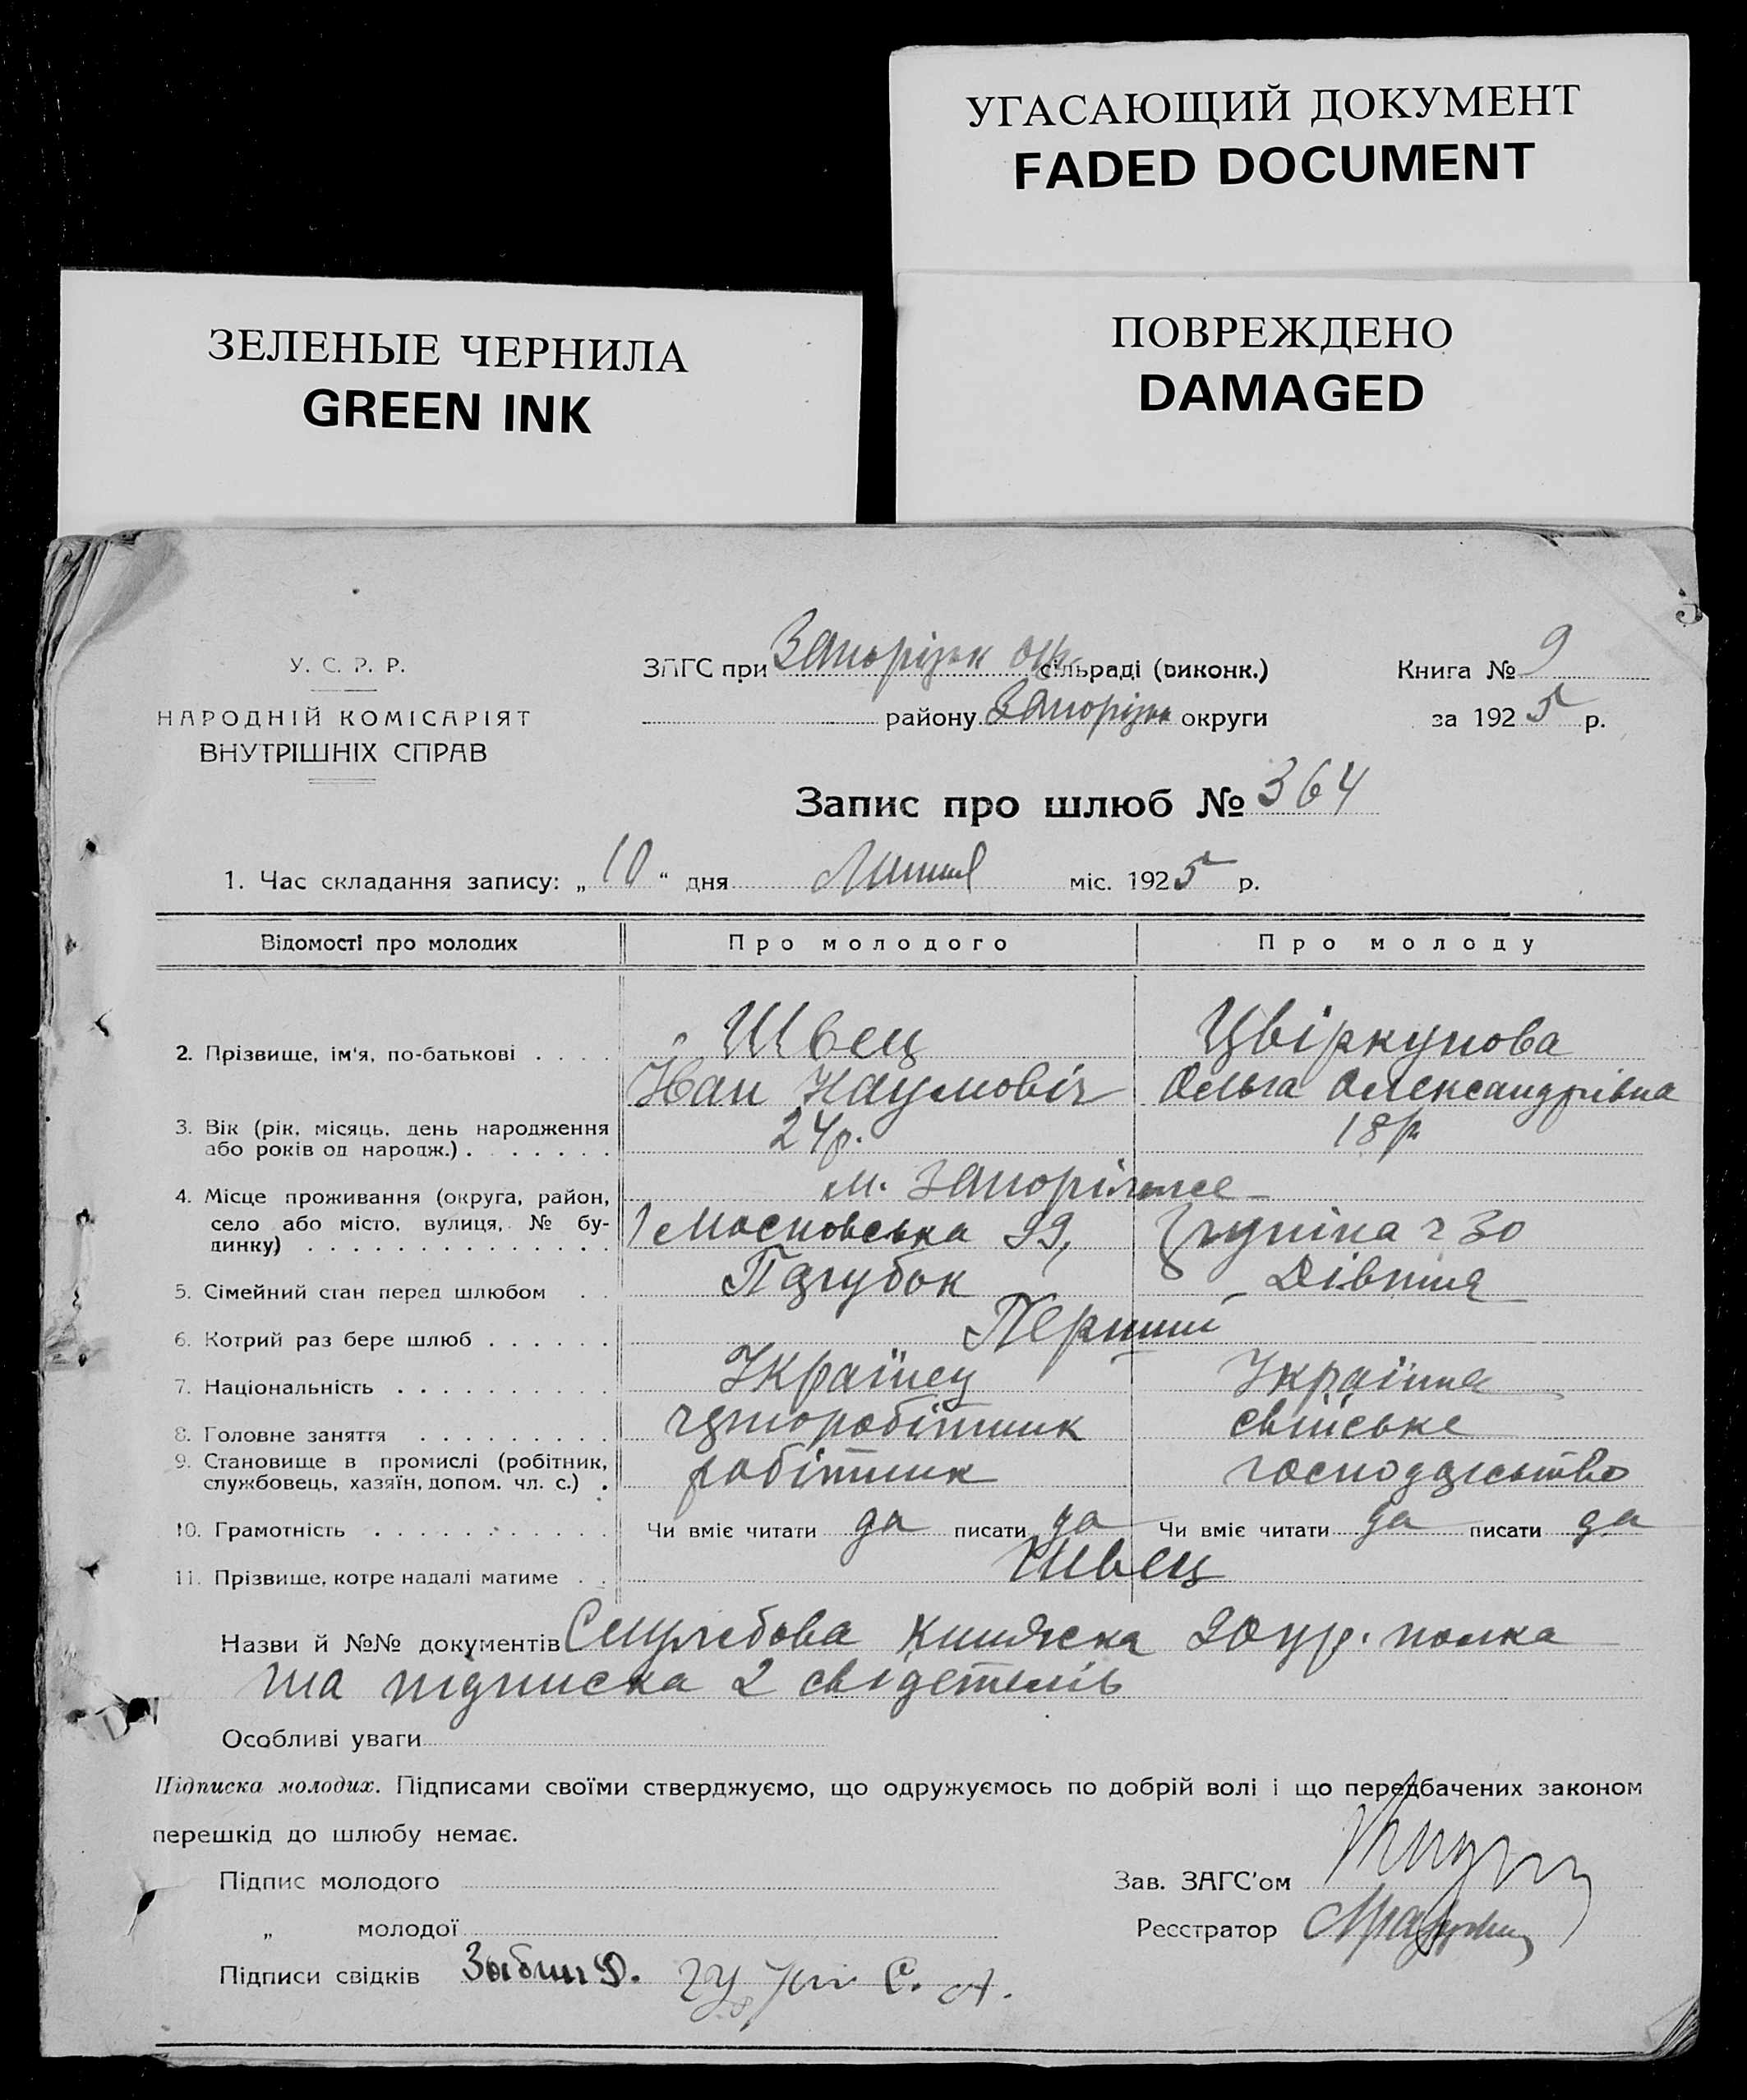 УГАСАЮЩИЙ ДОКУМЕНТ
FADED DOCUMENT
ЗЕЛЕНЫЕ ЧЕРНИЛА
GREEN INK
ПОВРЕЖДЕНО
DAMAGED
У. С. Р. Р.
НАРОДНІЙ КОМІСАРІЯТ
ВНУТРІШНІХ СПРАВ
ЗАГС при Запорізьк окр. сільраді (виконк.)
району Запорізьк округи
Книга № 9
за 1925 р.
Запис про шлюб № 364
1. Час складання запису: „ 10 “ дня Липня міс. 1925 р.
Відомості про молодих Про молодого Про молоду
2. Прізвище, ім'я, по-батькові . . . . Швец Цвіркунова
Іван Наумовіч Ольга Олександрівна
3. Вік (рік, місяць, день народження 24р. 18р.
або років од народж.) . . . . . . .
4. Місце проживання (округа, район, м. Запоріжже
село або місто, вулиця, № бу- Московська 99, ч 30
динку) . . . . . . . . . . . . . .
5. Сімейний стан перед шлюбом . . Парубок Дівиця
6. Котрий раз бере шлюб . . . . . . Перший
7. Національність . . . . . . . . . . Українец Українка
8. Головне заняття . . . . . . . . . чорноробітник сільське
9. Становище в промислі (робітник, робітник господарство
службовець, хазяїн, допом. чл. с.) .
10. Грамотність . . . . . . . . . . . Чи вміє читати да писати да Чи вміє читати да писати да
11. Прізвище, котре надалі матиме . . Швец
Назви й №№ документів Служебова книжека 90 полка
та підписка 2 свідетелів
Особливі уваги
Підписка молодих. Підписами своїми стверджуємо, що одружуємось по добрій волі і що передбачених законом
перешкід до шлюбу немає.
Підпис молодого
Зав. ЗАГС'ом
„ молодої
Реєстратор
Підписи свідків С. А.